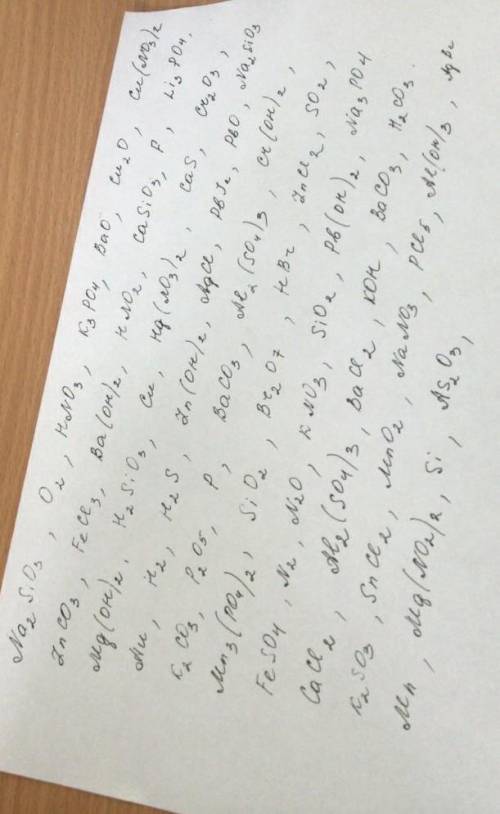 Na2SiO3, O2, HNO3, K3PO4, BaO, Cu2O, Cu(NO3)2
ZnCO3, FeCl3, Ba(OH)2, HNO2, CaSiO3, P, Li3PO4,
Mg(OH)2, H2SiO3, Cu, Hg(NO3)2, CaS, Cr2O3,
Au, H2, H2S, Zn(OH)2, AgCl, PbI2, PbO, Na2SiO3
K2CO3, P2O5, P, BaCO3, Al2(SO4)3, Cr(OH)2,
Mn3(PO4)2, SiO2, Br2O7, HBr, ZnCl2, SO2,
FeSO4, N2, N2O, KNO3, SiO2, Pb(OH)2, Na3PO4
CaCl2, Al2(SO4)3, BaCl2, KOH, BaCO3, H2CO3.
K2SO3, SnCl2, MnO2, NaNO3, PCl5, Al(OH)3, AgBr
Mn, Mg(NO2)2, Si, As2O3,